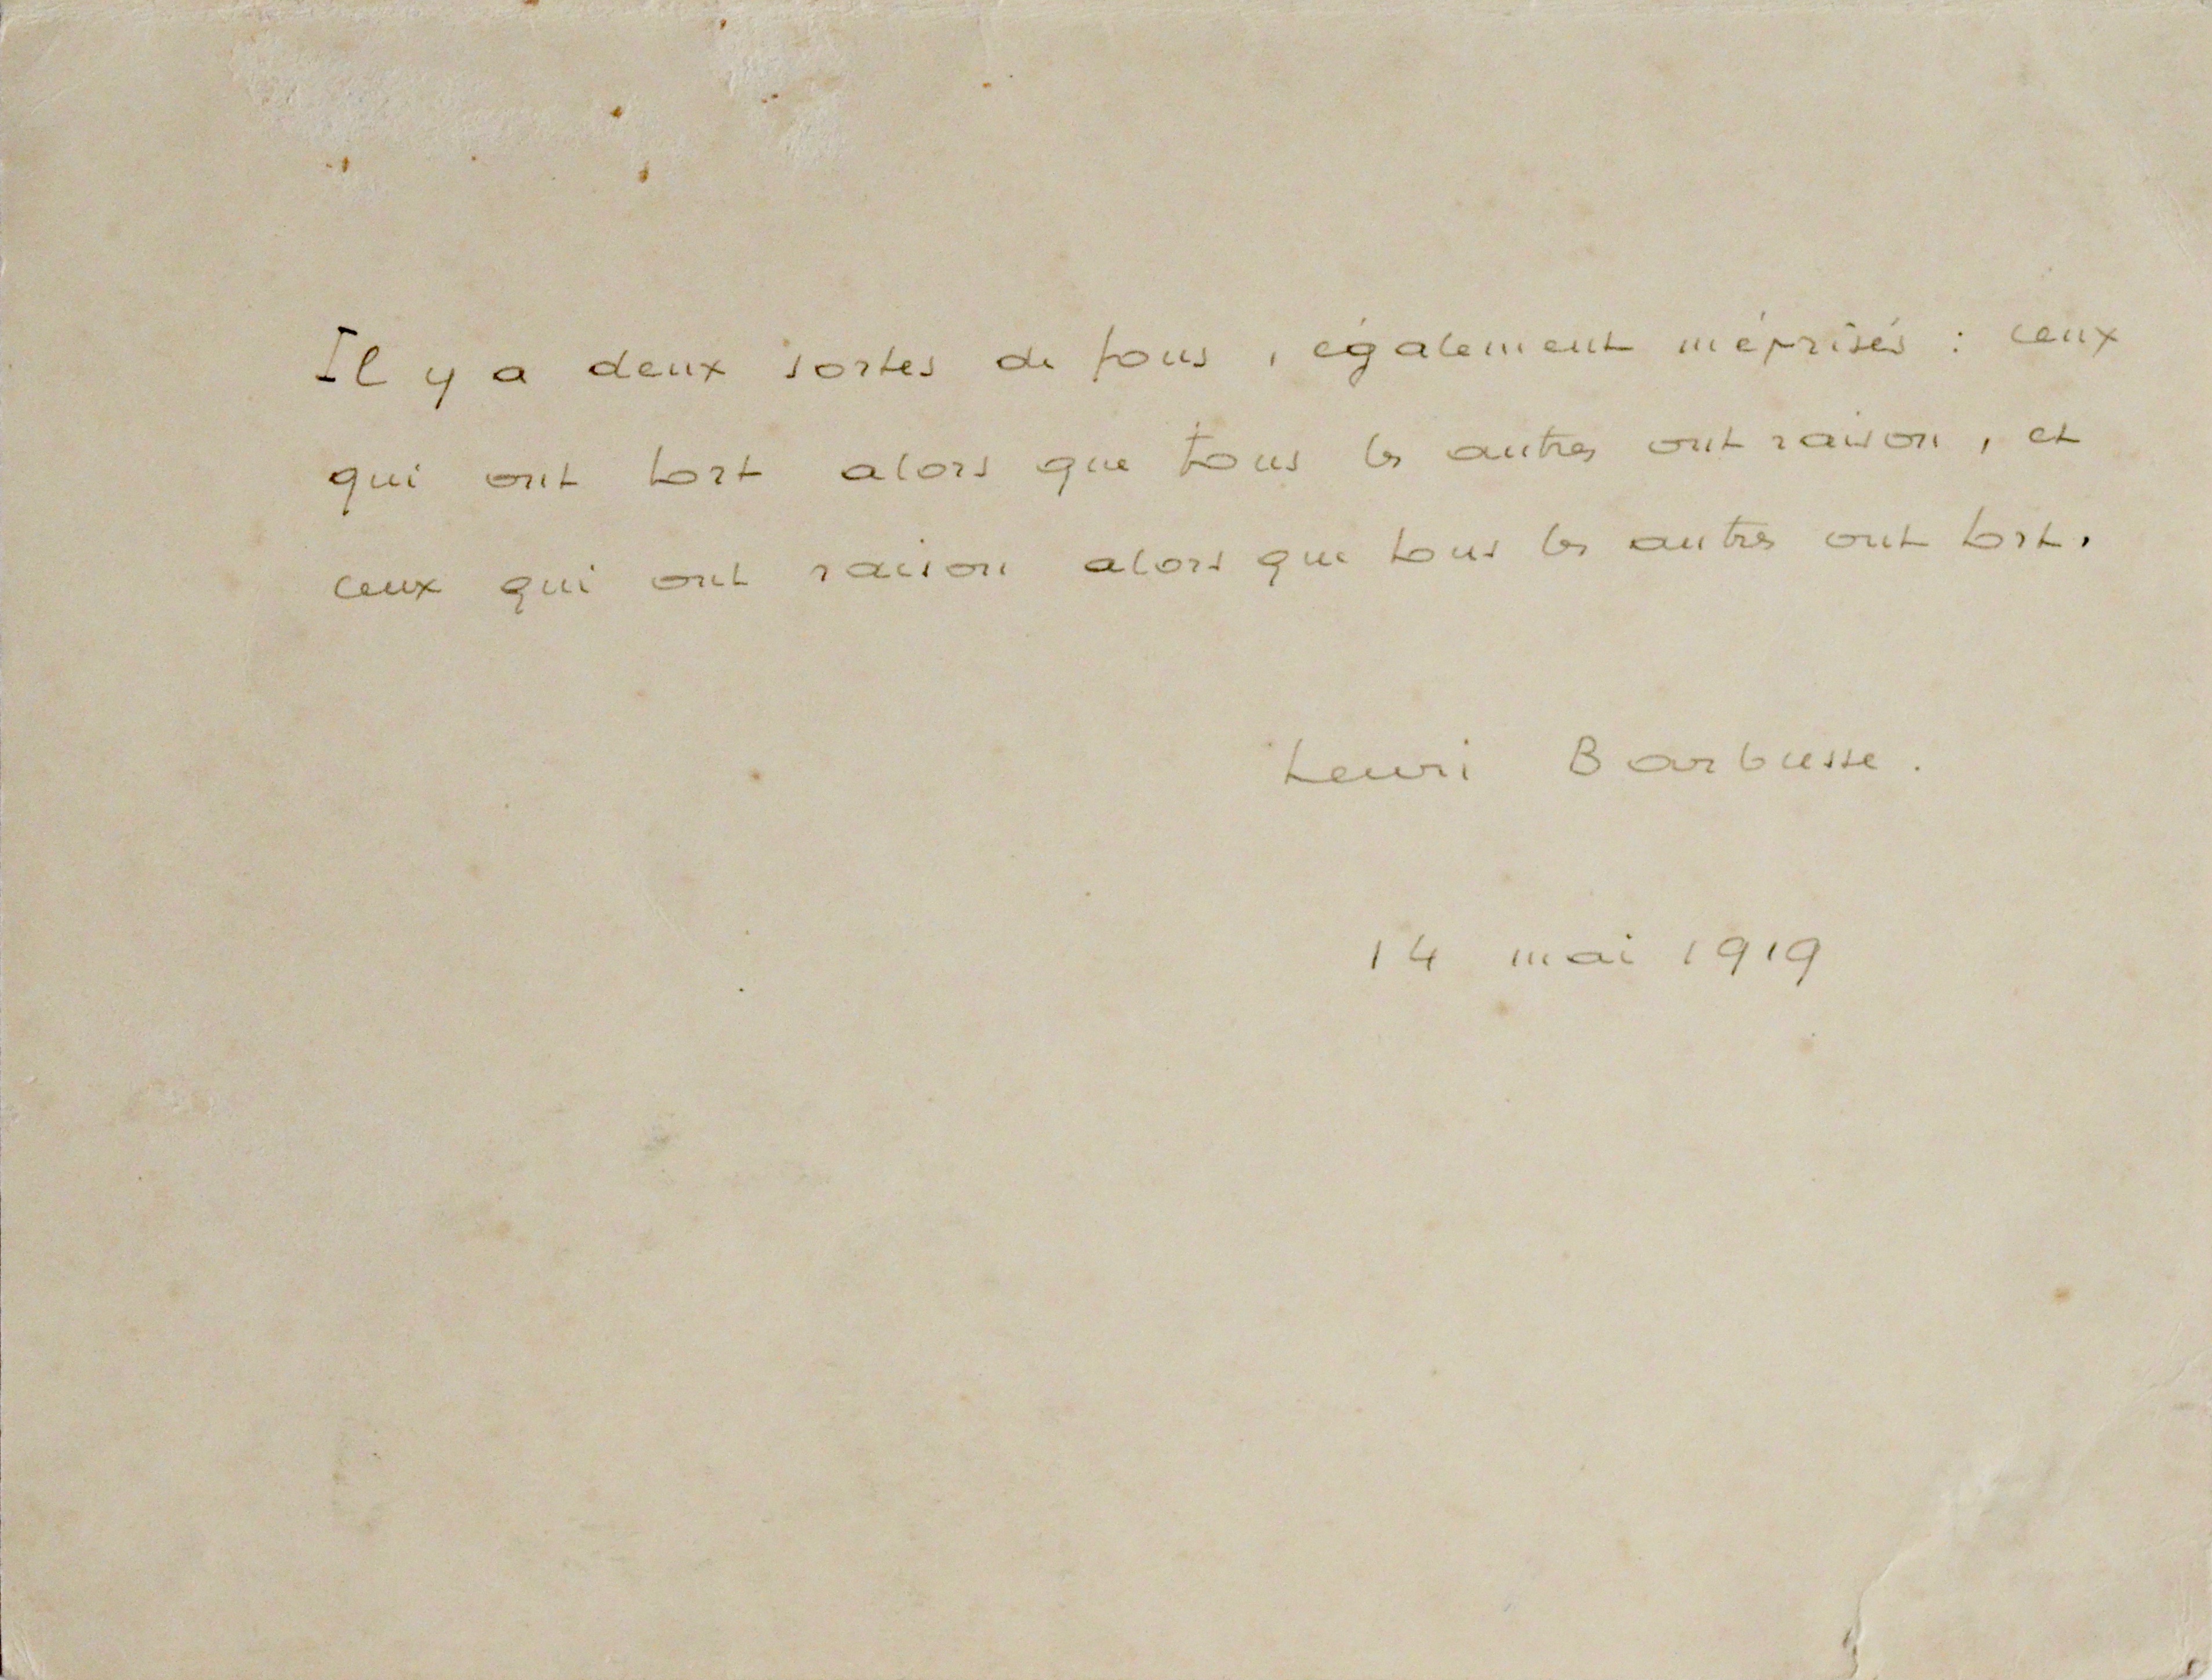 Il y a deux sortes de fous, également méprisés : ceux
qui ont tort alors que tous les autres ont raison, et
ceux qui ont raison alors que tous les autres ont tort.
Henri Barbusse.
14 mai 1919